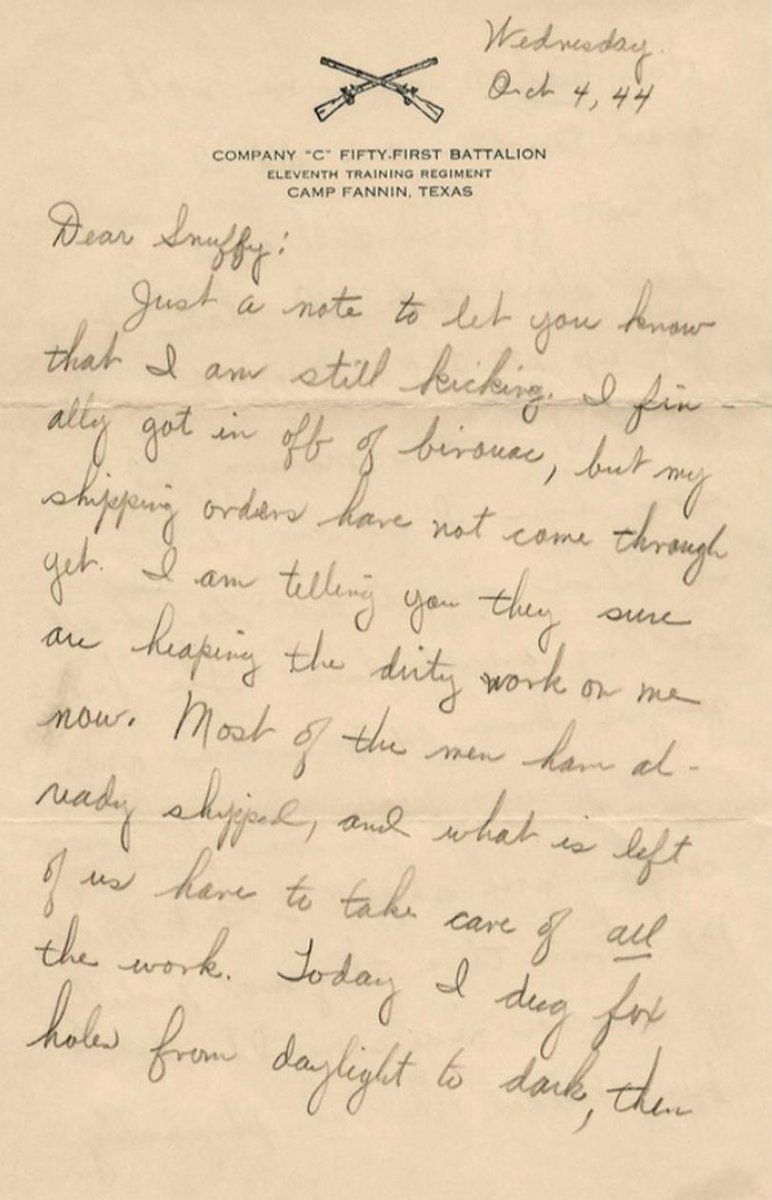 Wednesday.
Oct 4, 44
COMPANY "C" FIFTY-FIRST BATTALION
ELEVENTH TRAINING REGIMENT
CAMP FANNIN, TEXAS
Dear Snuffy:
Just a note to let you know
that I am still kicking. I fin-
ally got in off of bivouac, but my
shipping orders have not come through
yet. I am telling you they sure
are heaping the dirty work on me
now. Most of the men have al-
ready shipped, and what is left
of us have to take care of all
the work. Today I dug fox
holes from daylight to dark, then